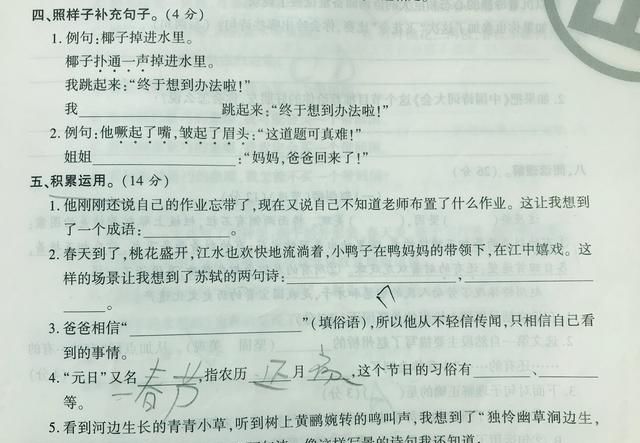 四、照样子补充句子。(4 分)
1. 例句:椰子掉进水里。
椰子扑通一声掉进水里。
我跳起来:“终于想到办法啦!”
我____________________跳起来:“终于想到办法啦!”
2. 例句:他噘起了嘴,皱起了眉头:“这道题可真难!”
姐姐____________________:“妈妈,爸爸回来了!”
五、积累运用。(14 分)
1. 他刚刚还说自己的作业忘带了,现在又说自己不知道老师布置了什么作业。这让我想到
了一个成语:____________。
2. 春天到了,桃花盛开,江水也欢快地流淌着,小鸭子在鸭妈妈的带领下,在江中嬉戏。这
样的场景让我想到了苏轼的两句诗:____________________,____________
______。
3. 爸爸相信“____________________”(填俗语),所以他从不轻信传闻,只相信自己看
到的事情。
4. “元日”又名春节,指农历 正 月 ,这个节日的习俗有__________
等。
5. 看到河边生长的青青小草,听到树上黄鹂婉转的鸣叫声,我想到了“独怜幽草涧边生,